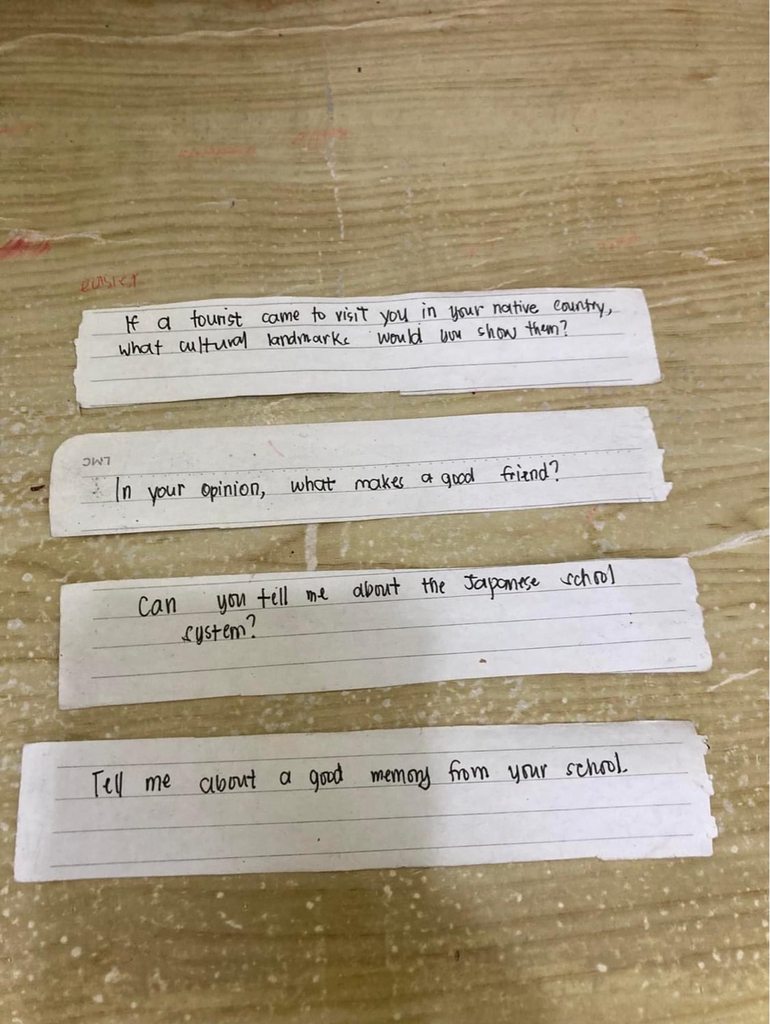 If a tourist came to visit you in your native country,
what cultural landmarks would you show them?
LMC
In your opinion, what makes a good friend?
Can you tell me about the Japanese school
system?
Tell me about a good memory from your school.